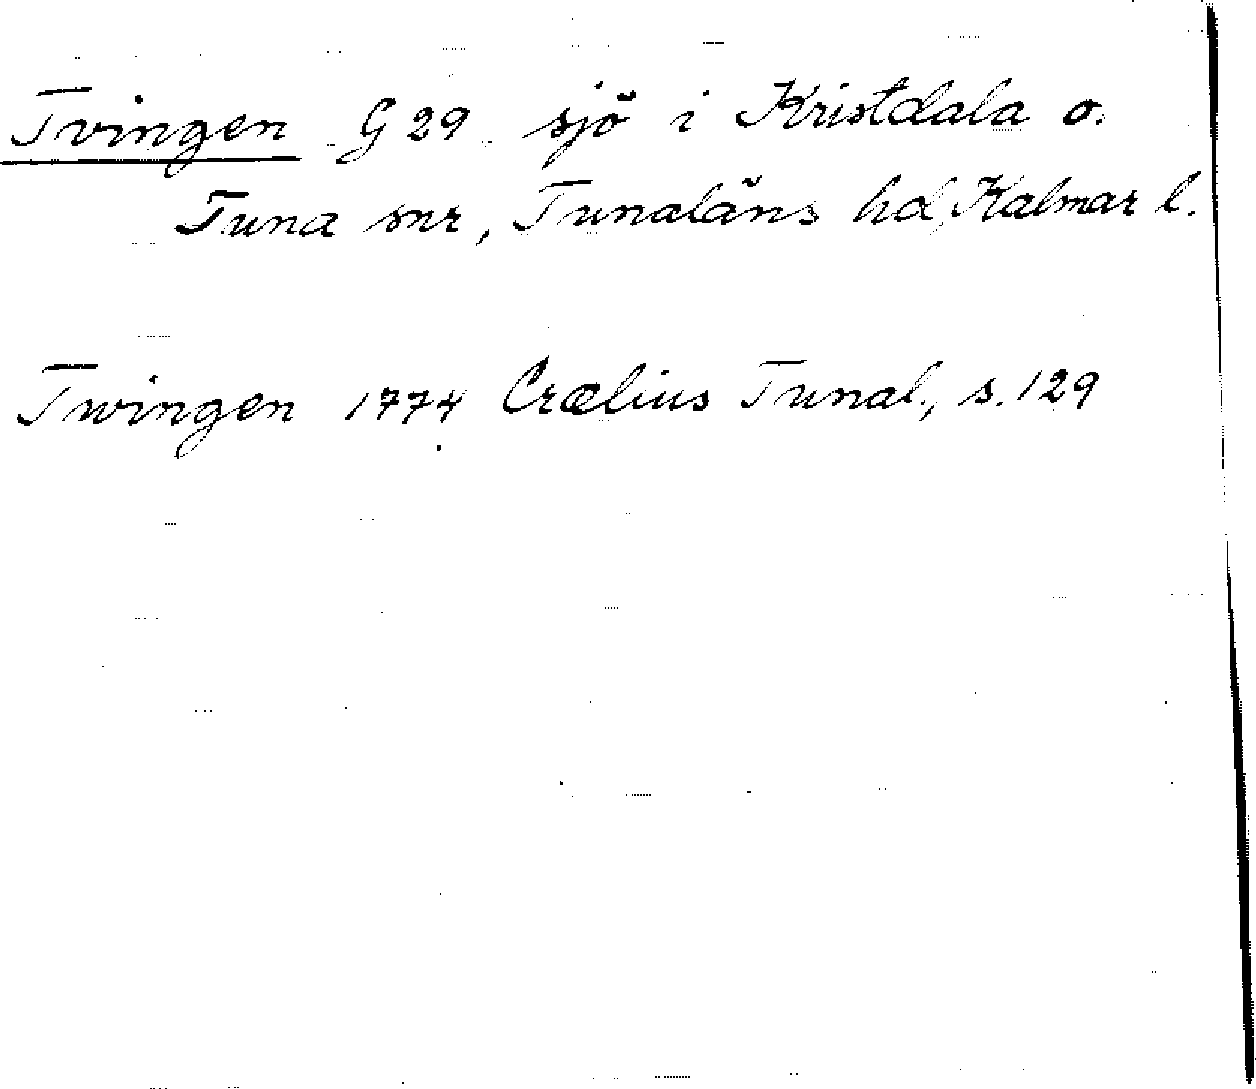 Tvingen G 29 sjö i Kristdala o.
Tuna snr, Tunaläns hd, Kalmar l.
Twingen 1774 Crælius Tunal., s. 129